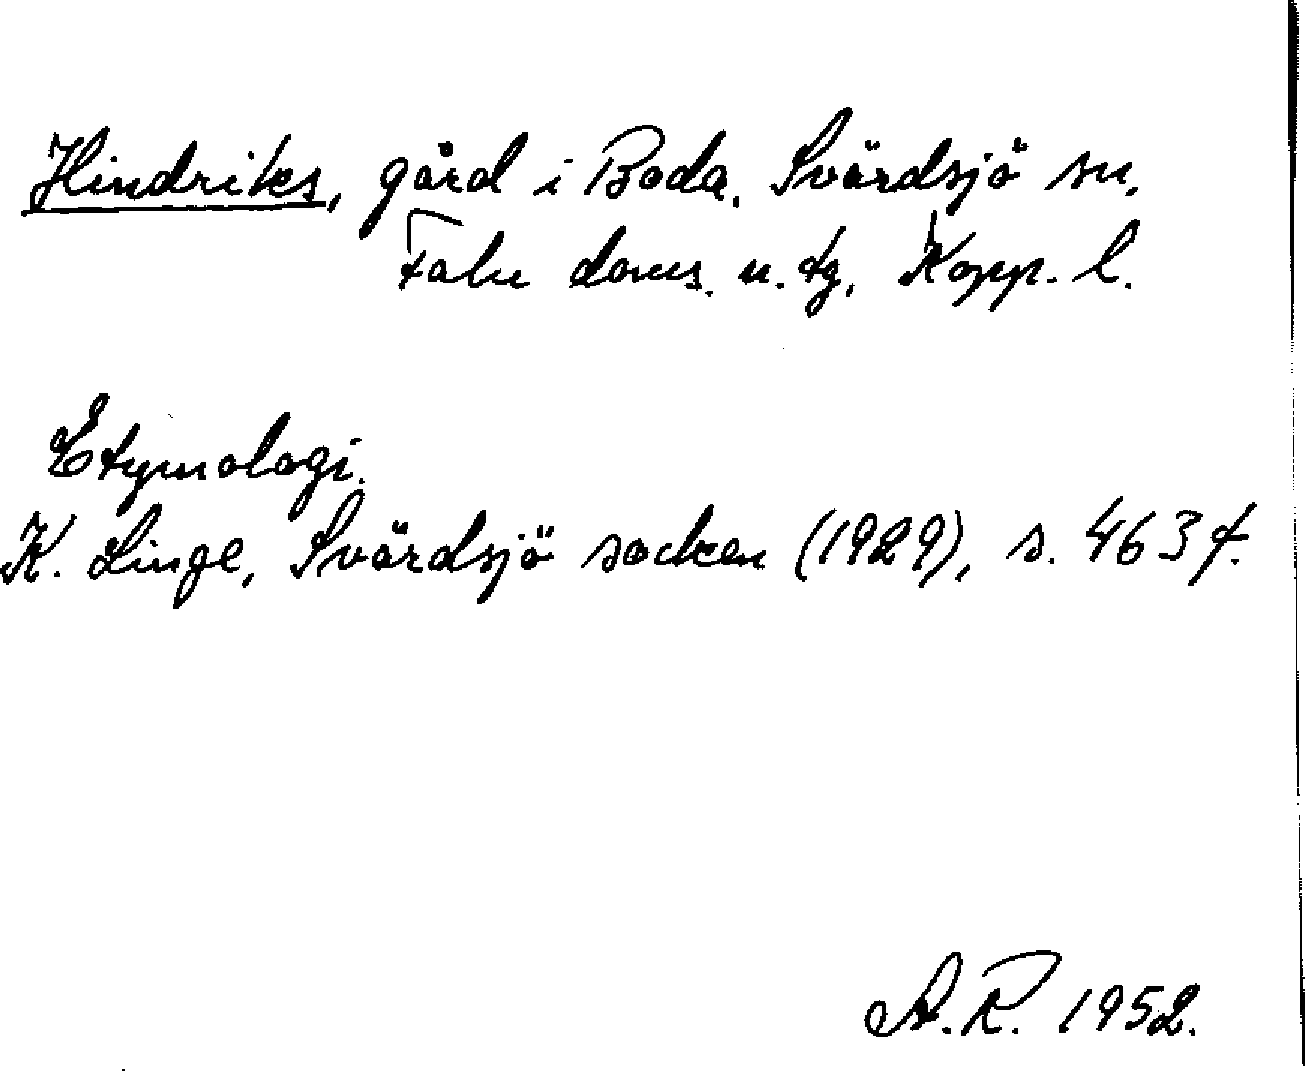 Hindriks, gård i Boda, Svärdsjö sn,
Falu doms. n. tg, Kopp. l.
Etymologi.
K. Linge, Svärdsjö socken (1929), s. 463 f.
A.R. 1952.